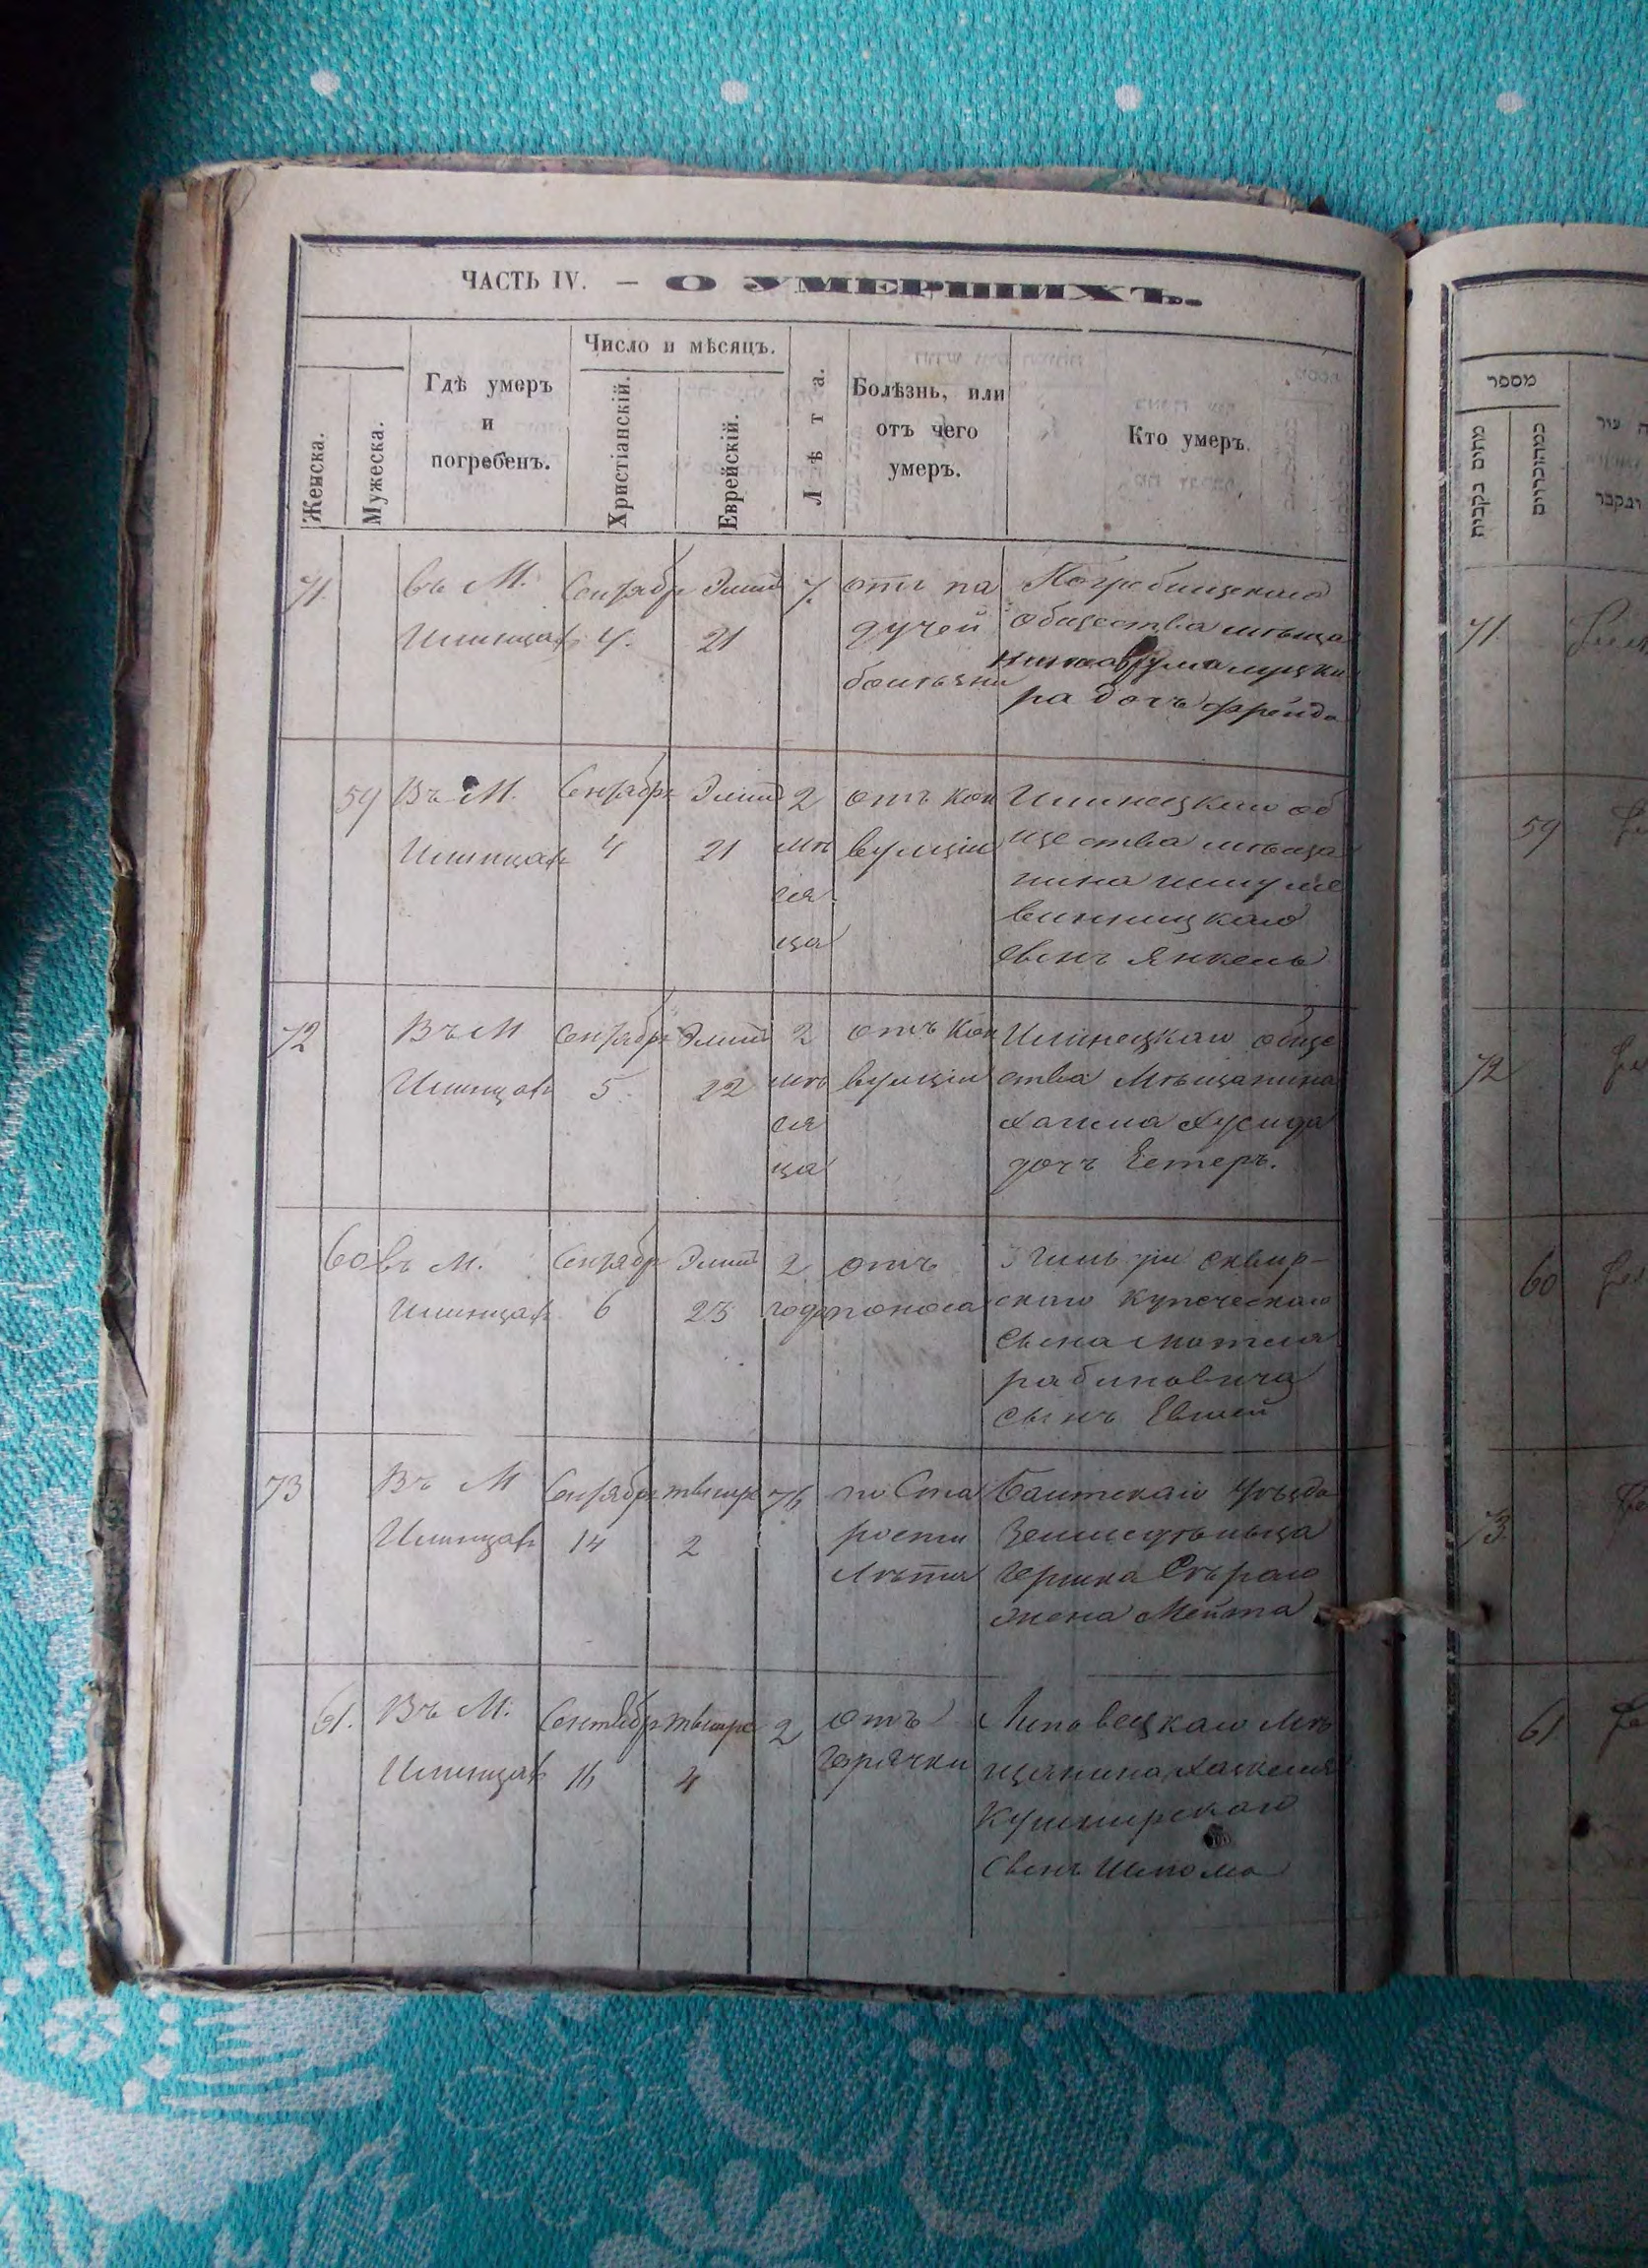 ЧАСТЬ IV. — О УМЕРШИХЪ.
Женска.
Мужеска.
Гдѣ умеръ
и
погребенъ.
Число и мѣсяцъ.
Христіанскій.
Еврейскій.
Лѣта.
Болѣзнь, или
отъ чего
умеръ.
Кто умеръ.
71.
въ М.
Илинцах
Сентябр
4.
Элюл
21
7
отъ па
дучей
болѣзни
Погребищскаго
общества мѣща
ра дочъ Фрейда
59
Въ М.
Илинцах
Сентябр
4
Элюл
21
2
мѣ
ся
ца
отъ кон
вулціи
Илинецкаго об
щества мѣща
нина Шмуля
Винницкаго
сынъ Янкель
72
Въ М
Илинцах
Сентябр
5.
Элюл
22
2
мѣ
ся
ца
отъ кон
вулціи
Илинецкаго обще
ства мѣщанина
Хаима Хусида
дочъ Естеръ.
60
въ М.
Илинцах
Сентябр
6
Элюл
23
2
года
отъ
поноса
3 гильдіи Сквир-
скаго купеческаго
сына Мотеля
Рабиновича
сынъ Евшей
73
Въ М
Илинцах
Сентябр
14
тышре
2
по Ста
рости
лѣтъ
Балтскаго уѣзда
Земледѣльца
Гершка Сѣраго
жена Мейта
61.
Въ М.
Илинцах
Сентябр
16
тышре
4
2
отъ
горячки
Липовецкаго мѣ
щанина Хацкеля
Кушнирскаго
сынъ Шлома
מספר
מתים נקבות
ונקבר
71.
59
72
60
73.
61